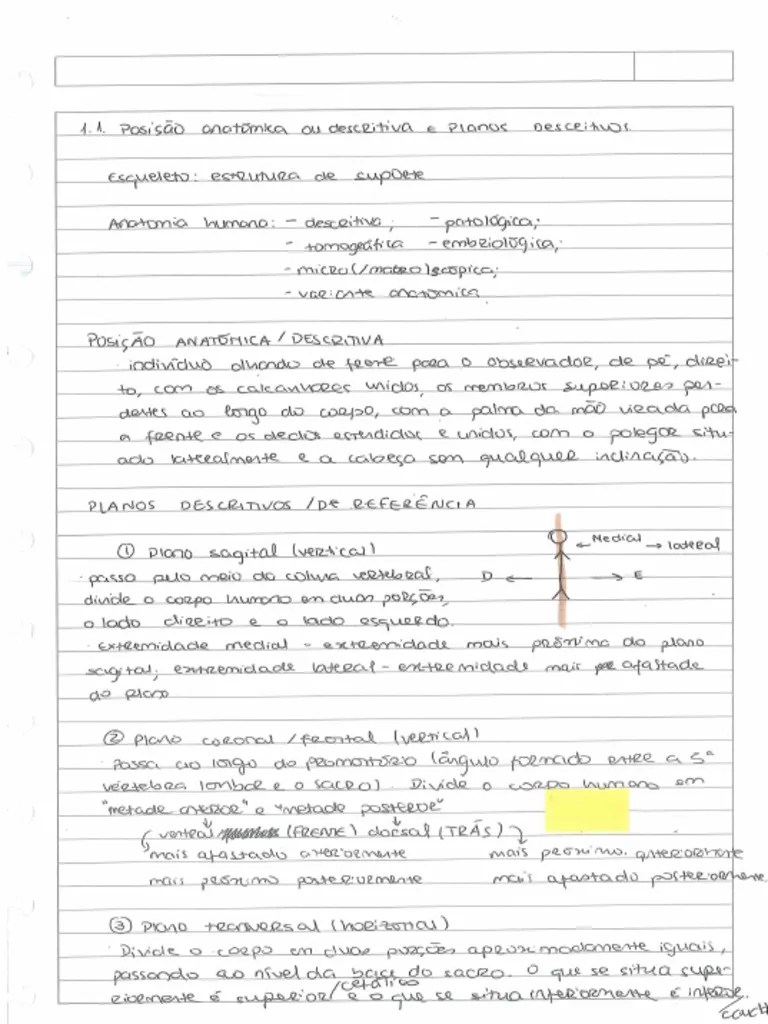 1.1. Posisão anatômica ou descritiva e Planos Descritivos.
Esqueleto: estrutura de suporte
Anatomia humana: - descritiva; - patológica;
- tomográfica - embriológica;
- micro(/macro)scópica;
- variante anatômica
POSIÇÃO ANATÔMICA / DESCRITIVA
· indivíduo olhando de frente para o observador, de pé, direi-
to, com os calcanhares unidos, os membros superiores pen-
dentes ao longo do corpo, com a palma da mão virada para
a frente e os dedos estendidos e unidos, com o polegar situ-
ado lateralmente e a cabeça sem qualquer inclinação.
PLANOS DESCRITIVOS / DE REFERÊNCIA
① Plano sagital (vertical)
← Medial → lateral
· passa pelo meio da coluna vertebral,
D ← → E
divide o corpo humano em duas porções,
o lado direito e o lado esquerdo.
· Extremidade medial - extremidade mais próxima do plano
sagital; extremidade lateral - extremidade mais afastada
do plano
② Plano coronal / frontal (vertical)
· Passa ao longo do promontório (ângulo formado entre a 5ª
vértebra lombar e o sacro). Divide o corpo humano em
"metade anterior" e "metade posterior"
ventral (FRENTE) dorsal (TRÁS)
mais afastado anteriormente mais próximo anteriormente
mais próximo posteriormente mais afastado posteriormente
③ Plano transversal (horizontal)
· Divide o corpo em duas porções aproximadamente iguais,
passando ao nível da base do sacro. O que se situa supe-
riormente é superior/cefálico e o que se situa inferiormente é inferior.